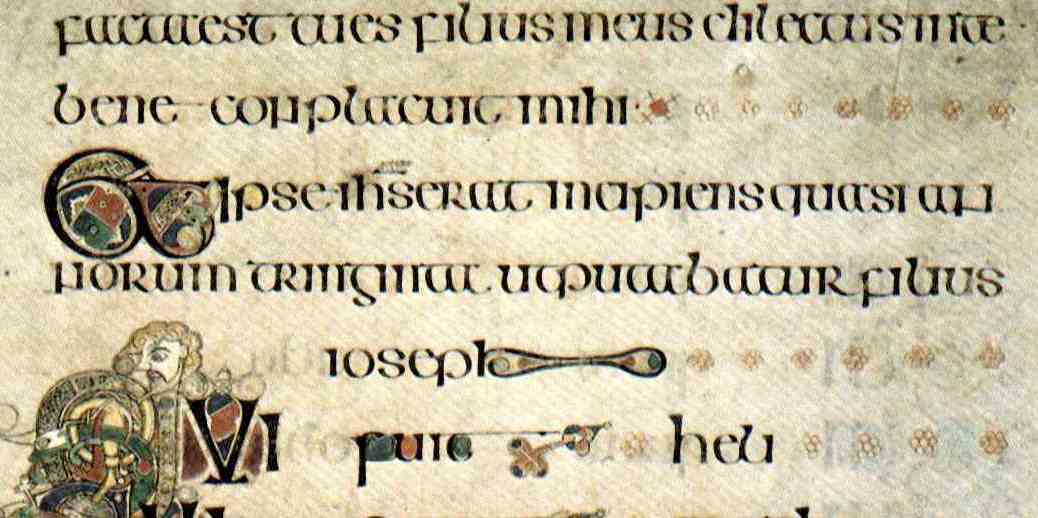 facta est tu es filius meus dilectus in te
bene conplacuit mihi
Et ipse ihs erat incipiens quasi an
norum triginta ut putabatur filius
ioseph
QVI fuit heli